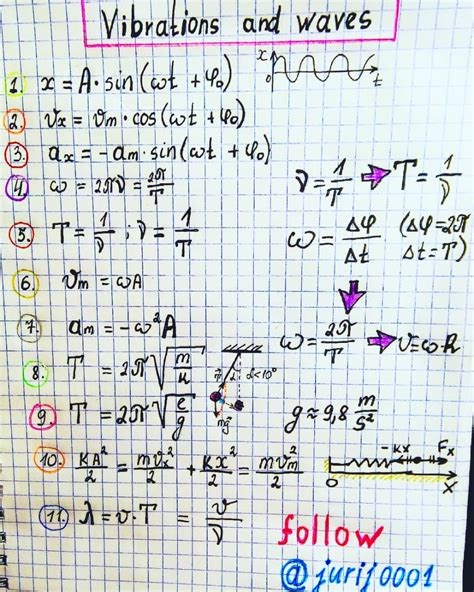 Vibrations and waves
1. x = A · sin(ωt + φ₀)
x
0
t
2. vₓ = vₘ · cos(ωt + φ₀)
3. aₓ = -aₘ · sin(ωt + φ₀)
4. ω = 2πν = 2π/T
ν = 1/T → T = 1/ν
5. T = 1/ν ; ν = 1/T
ω = Δφ/Δt (Δφ=2π
Δt=T)
6. vₘ = ωA
7. aₘ = -ω²A
ω = 2π/T → v=ω·R
8. T = 2π√(m/k)
α<10°
mg
9. T = 2π√(ℓ/g)
g ≈ 9,8 m/s²
10. kA²/2 = mvₓ²/2 + kx²/2 = mvₘ²/2
-kx Fₓ
0 X
11. λ = v·T = v/ν
follow
@jurij0001